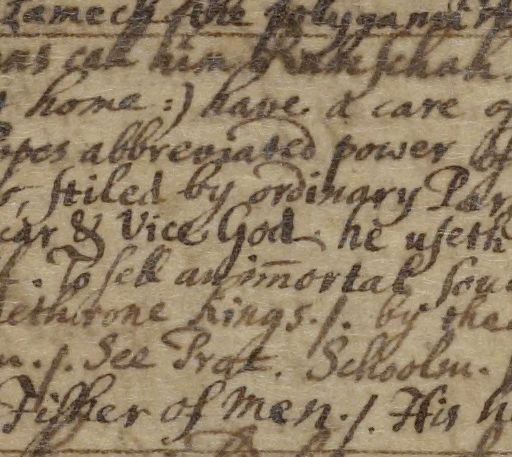 Lamech the polygami
ns call him Ramschah
home :) have a care o
opes abbreviated power of
, stiled by ordinary Par
car & Vice God. he useth
. To sell an im̄ortal sou
ethrone kings. /. by thei
. /. See Prat. Schoolm.
Fisher of men. /. His h